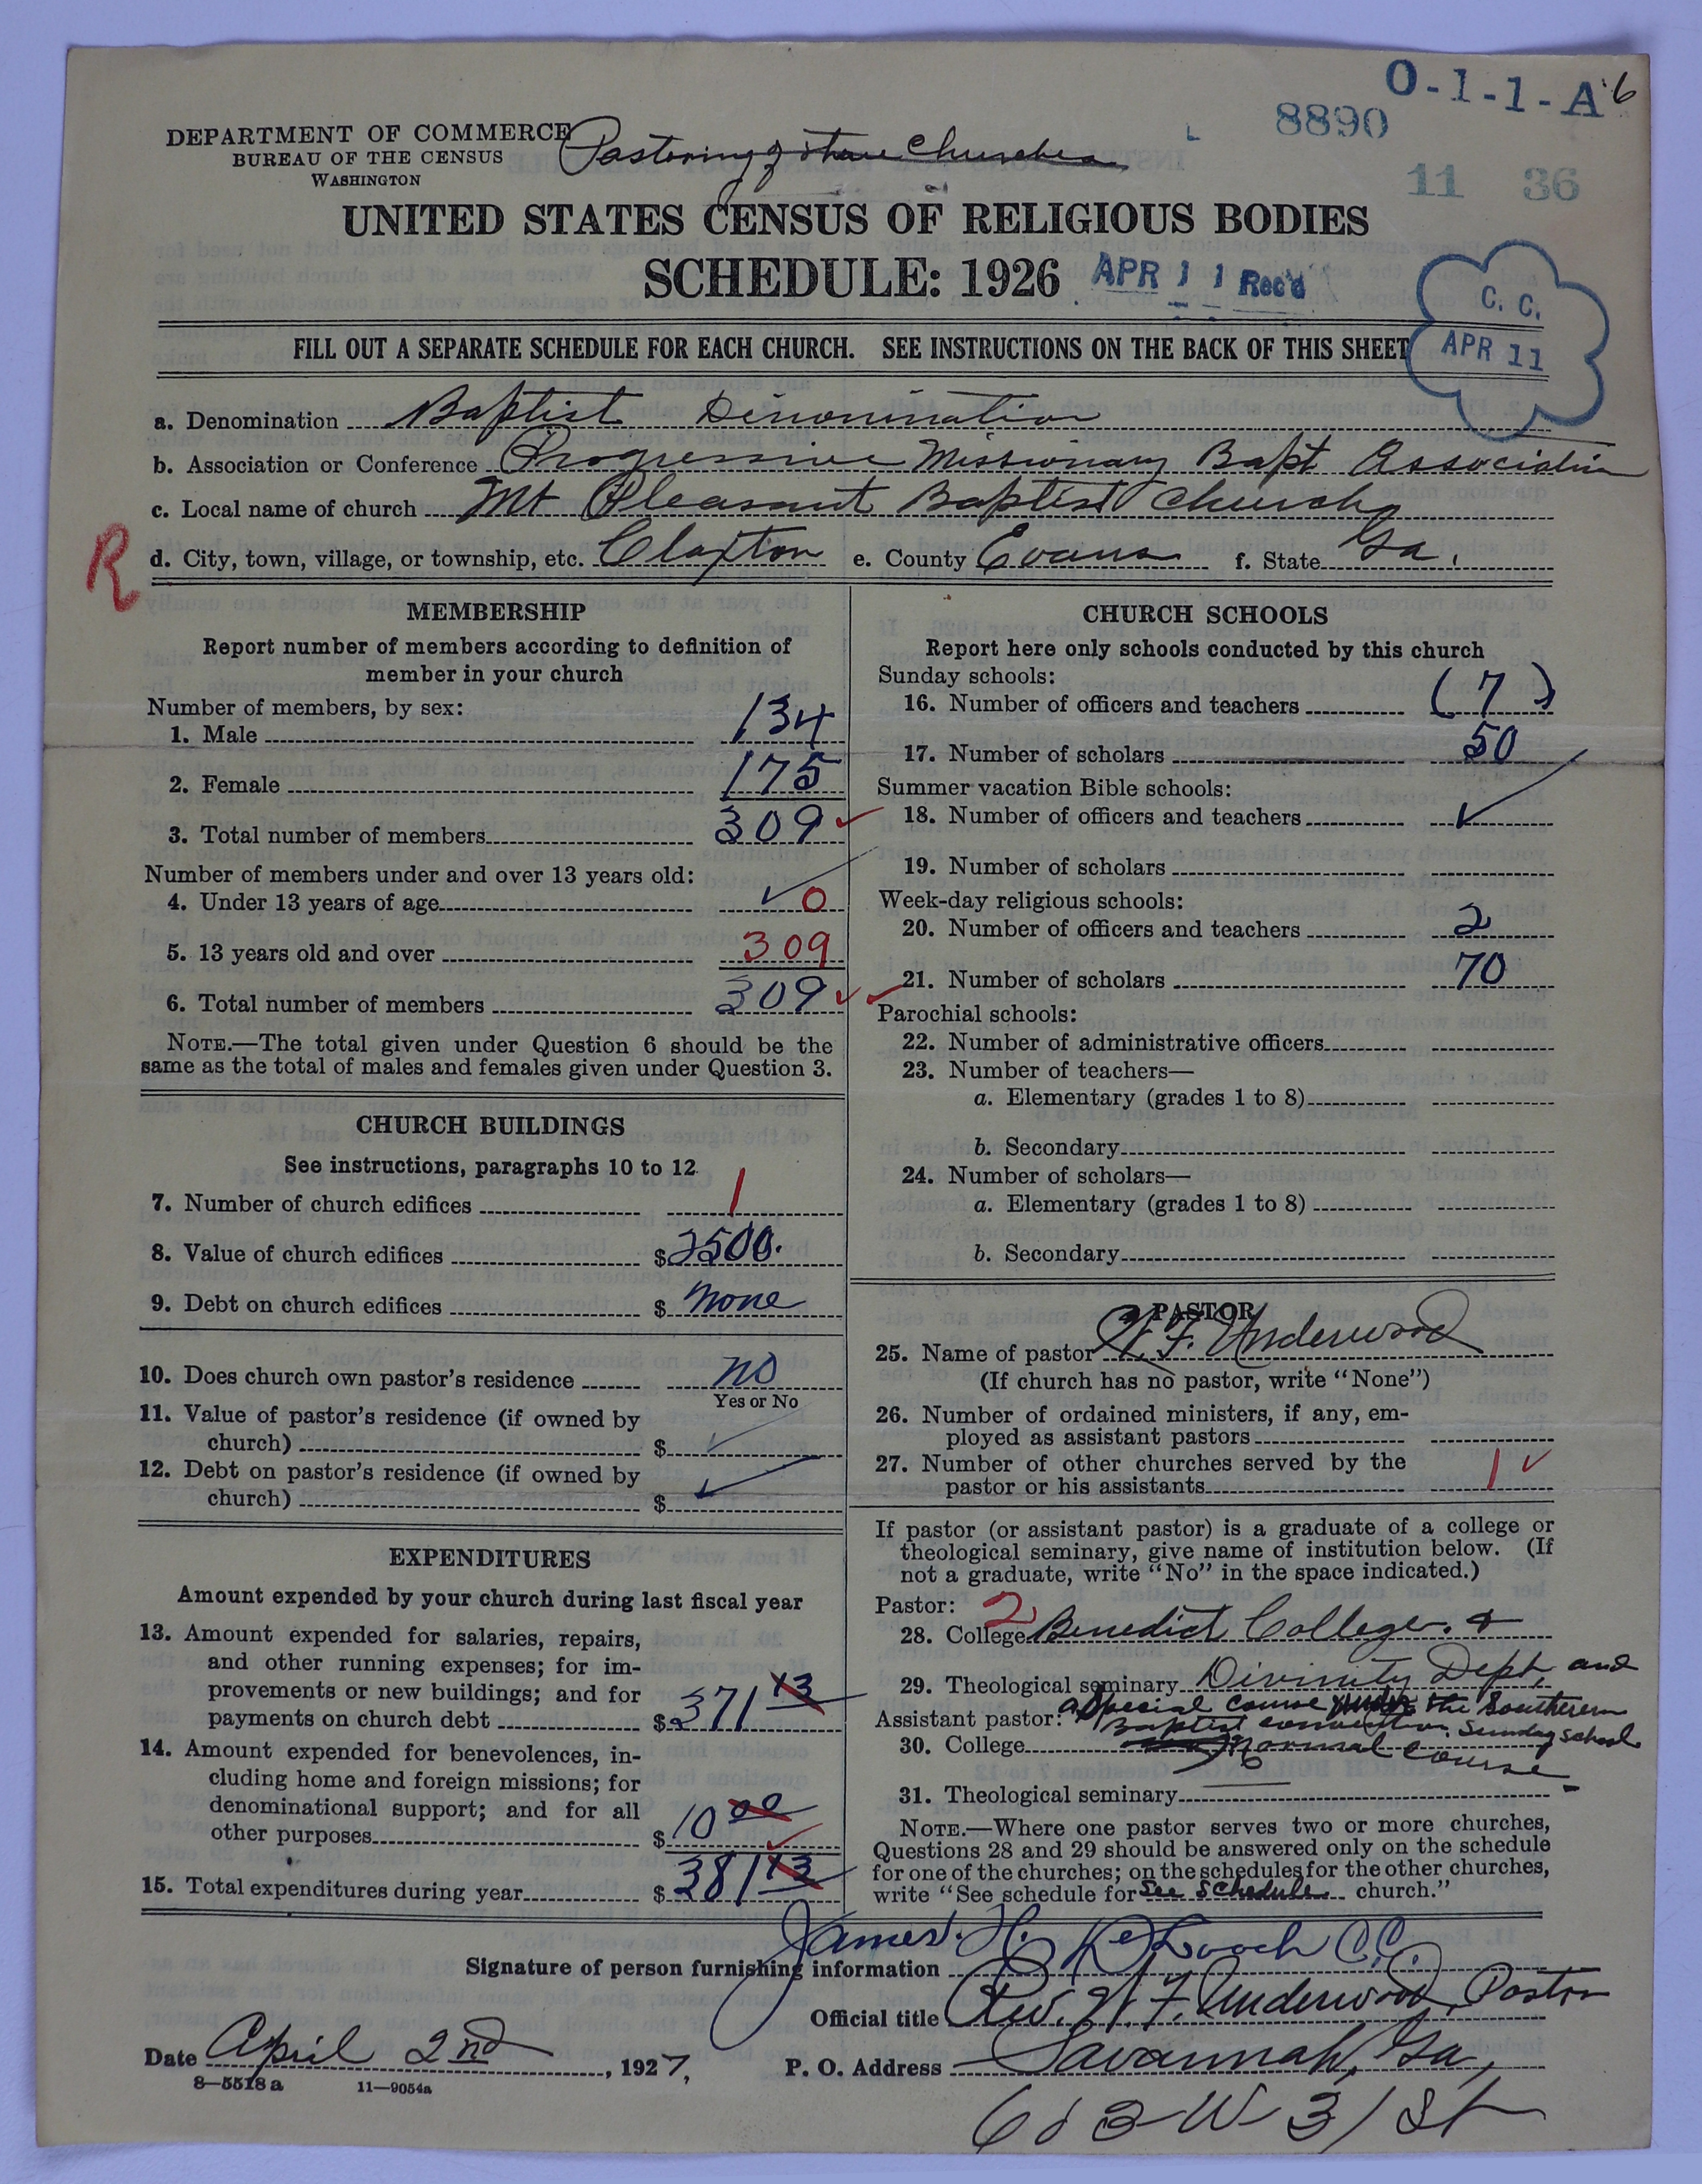 O-1-1-A 6
8890
11 36
DEPARTMENT OF COMMERCE
BUREAU OF THE CENSUS
WASHINGTON
Pastoring of three Churches
UNITED STATES CENSUS OF RELIGIOUS BODIES
SCHEDULE: 1926 APR 11 Rec'd
C. C.
APR 11
FILL OUT A SEPARATE SCHEDULE FOR EACH CHURCH. SEE INSTRUCTIONS ON THE BACK OF THIS SHEET
a. Denomination Baptist Dinomination
b. Association or Conference Progressive Missionary Bapt Association
c. Local name of church Mt Pleasant Baptist Church
R
d. City, town, village, or township, etc. Claxton e. County Evans f. State Ga.
MEMBERSHIP
Report number of members according to definition of
member in your church
Number of members, by sex:
1. Male 134
2. Female 175
3. Total number of members 309 ✓
Number of members under and over 13 years old:
4. Under 13 years of age ✓ 0
5. 13 years old and over 309
6. Total number of members 309 ✓
NOTE.—The total given under Question 6 should be the
same as the total of males and females given under Question 3.
CHURCH BUILDINGS
See instructions, paragraphs 10 to 12
7. Number of church edifices 1
8. Value of church edifices $2500.
9. Debt on church edifices $ none
10. Does church own pastor's residence no
Yes or No
11. Value of pastor's residence (if owned by
church) $ ✓
12. Debt on pastor's residence (if owned by
church) $ ✓
EXPENDITURES
Amount expended by your church during last fiscal year
13. Amount expended for salaries, repairs,
and other running expenses; for im-
provements or new buildings; and for
payments on church debt $371 13
14. Amount expended for benevolences, in-
cluding home and foreign missions; for
denominational support; and for all
other purposes $10 00
15. Total expenditures during year $381 13
CHURCH SCHOOLS
Report here only schools conducted by this church
Sunday schools:
16. Number of officers and teachers (7)
17. Number of scholars 50
Summer vacation Bible schools:
18. Number of officers and teachers ✓
19. Number of scholars
Week-day religious schools:
20. Number of officers and teachers 2
✓ 21. Number of scholars 70
Parochial schools:
22. Number of administrative officers
23. Number of teachers—
a. Elementary (grades 1 to 8)
b. Secondary
24. Number of scholars—
a. Elementary (grades 1 to 8)
b. Secondary
PASTOR
25. Name of pastor W. F. Underwood
(If church has no pastor, write "None")
26. Number of ordained ministers, if any, em-
ployed as assistant pastors
27. Number of other churches served by the
pastor or his assistants 1 ✓
If pastor (or assistant pastor) is a graduate of a college or
theological seminary, give name of institution below. (If
not a graduate, write "No" in the space indicated.)
Pastor: 2
28. College Benedict College. &
29. Theological seminary Divinity Dept, and
a Special Course under the Southern
Assistant pastor: Baptist convention Sunday school
30. College Normal Course
31. Theological seminary
NOTE.—Where one pastor serves two or more churches,
Questions 28 and 29 should be answered only on the schedule
for one of the churches; on the schedules for the other churches,
write "See schedule for See Schedule church."
Signature of person furnishing information James. H. DeLooch C.C.
Official title Rev. W. F. Underwood, Pastor
Date April 2nd, 1927, P. O. Address Savannah, Ga,
8—5518a 11—9054a
603 W 31 St